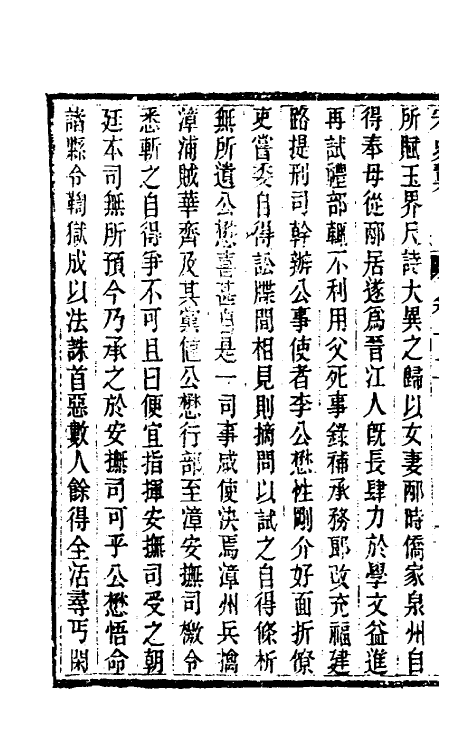 所賦玉界尺詩大異之歸以女妻邴時僑家泉州自
得奉母從邴居遂爲晉江人既長肆力於學文益進
再試禮部輒不利用父死事錄補承務郎改充福建
路提刑司幹辦公事使者李公懋性剛介好面折僚
吏嘗委自得訟牒間相見則摘問以試之自得條析
無所遺公懋喜甚自是一司事咸使決焉漳州兵擒
漳浦賊華齊及其黨值公懋行部至漳安撫司檄令
悉斬之自得爭不可且曰便宜指揮安撫司受之朝
廷本司無所預今乃承之於安撫司可乎公懋悟命
諸縣令鞫獄成以法誅首惡數人餘得全活尋丐閑